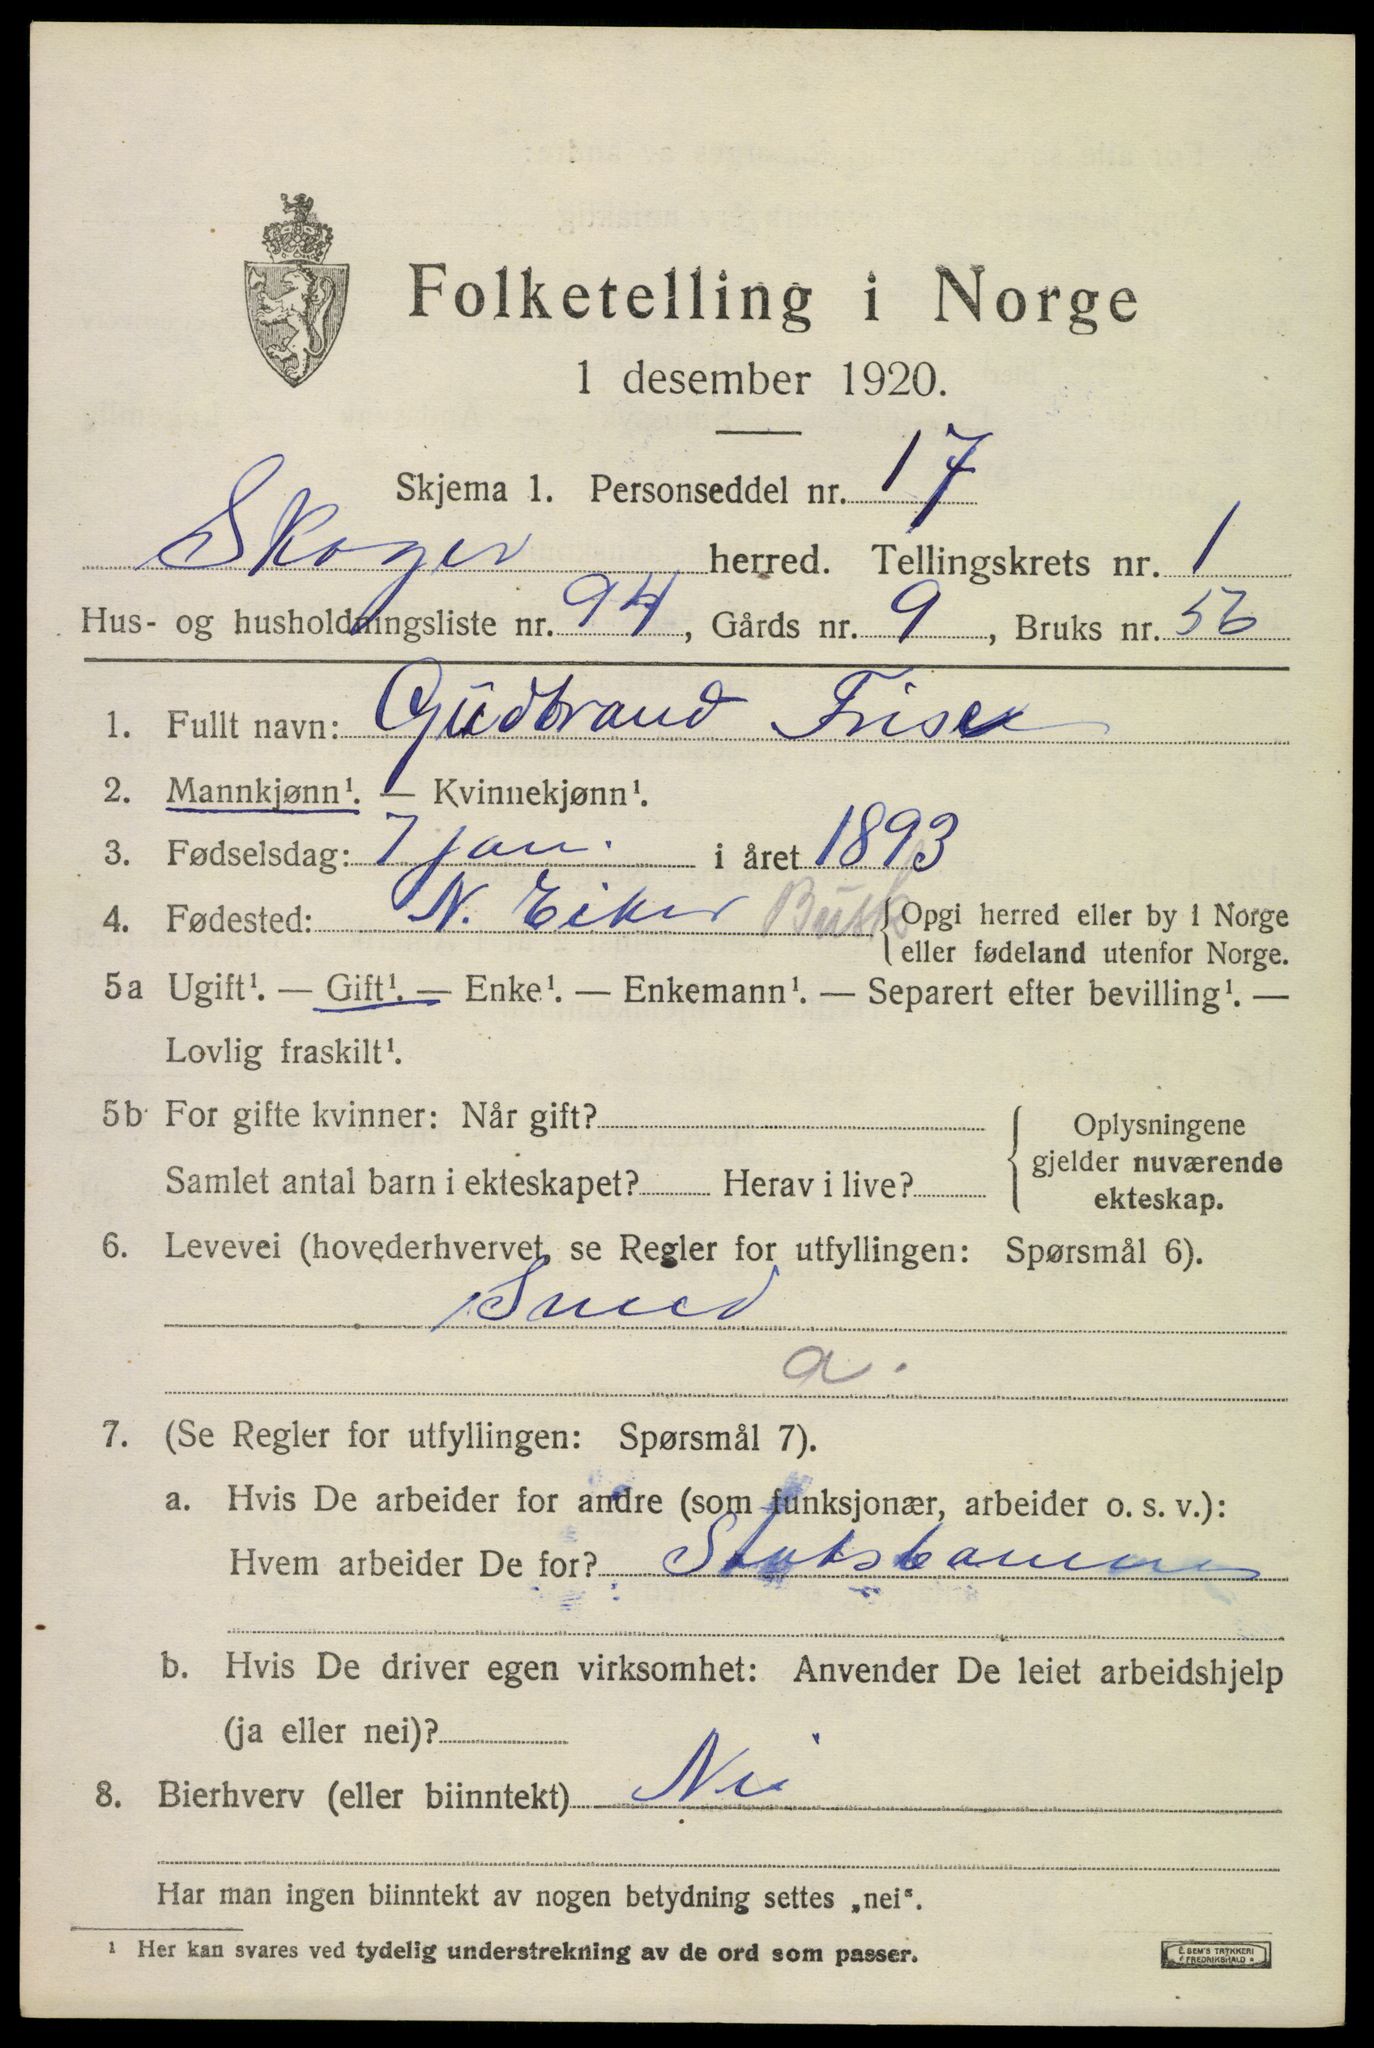 Folketelling i Norge
1 desember 1920.
Skjema 1. Personseddel nr. 17
Skoger herred. Tellingskrets nr. 1
Hus- og husholdningsliste nr. 94, Gårds nr. 9, Bruks nr. 56
1. Fullt navn: Gudbrand
2. Mannkjønn¹. — Kvinnekjønn¹.
3. Fødselsdag: 7 jan. i året 1893
4. Fødested: N. Eiker Busk { Opgi herred eller by i Norge
eller fødeland utenfor Norge.
5a Ugift¹. — Gift¹. — Enke¹. — Enkemann¹. — Separert efter bevilling¹. —
Lovlig fraskilt¹.
5b For gifte kvinner: Når gift?
Samlet antal barn i ekteskapet? Herav i live?
{ Oplysningene
gjelder nuværende
ekteskap.
6. Levevei (hovederhvervet, se Regler for utfyllingen: Spørsmål 6).
Smed
a.
7. (Se Regler for utfyllingen: Spørsmål 7).
a. Hvis De arbeider for andre (som funksjonær, arbeider o. s. v.):
Hvem arbeider De for? Statsbanerne
b. Hvis De driver egen virksomhet: Anvender De leiet arbeidshjelp
(ja eller nei)?
8. Bierhverv (eller biinntekt) Nei
Har man ingen biinntekt av nogen betydning settes „nei“.
¹ Her kan svares ved tydelig understrekning av de ord som passer.
E. SEM'S TRYKKERI
FREDRIKSHALD